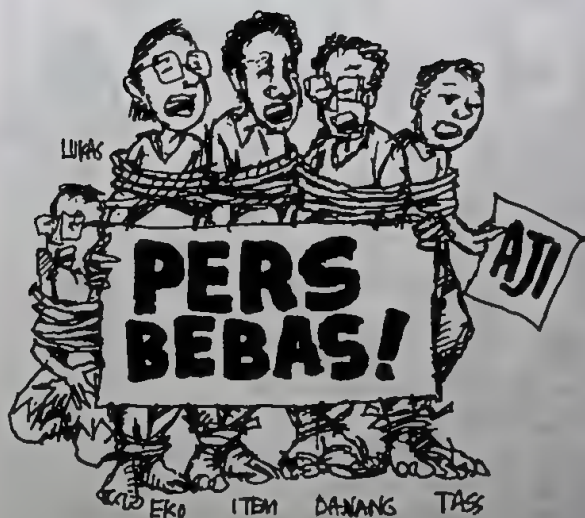 LUKAS
PERS
BEBAS!
AJI
EKO ITEM DANANG TASS